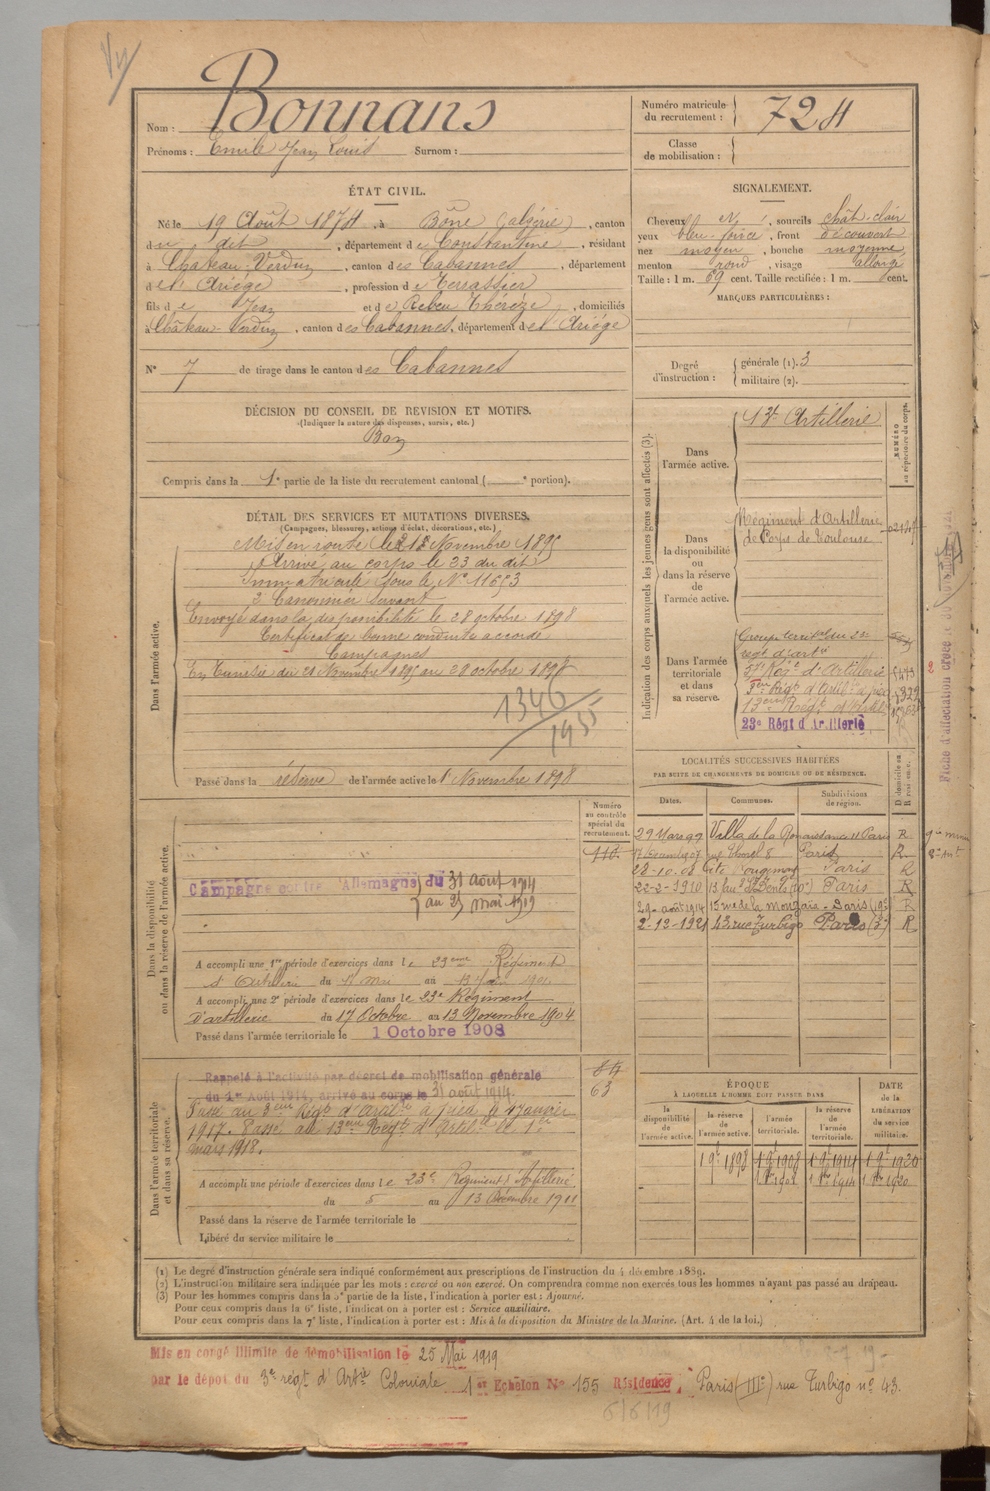 Bonnans
Nom :
Prénoms : Emile Jean Louis Surnom :
Numéro matricule
du recrutement : 724
Classe
de mobilisation :
ÉTAT CIVIL.
Né le 19 Août 1874, à Bône (Algérie), canton
du dit, département de Constantine, résidant
à Château-Verdun, canton des Cabannes, département
de l'Ariège, profession de Terrassier
fils de Jean et de Rebeu Thérèze, domiciliés
à Château-Verdun, canton des Cabannes, département de l'Ariège
N° 7 de tirage dans le canton des Cabannes
SIGNALEMENT.
Cheveux N, sourcils chât-clair
yeux bleu-foncé, front découvert
nez moyen, bouche moyenne
menton rond, visage allongé
Taille : 1 m. 69 cent. Taille rectifiée : 1 m. cent.
MARQUES PARTICULIÈRES :
Degré
d'instruction :
générale (1). 3
militaire (2).
DÉCISION DU CONSEIL DE REVISION ET MOTIFS.
(Indiquer la nature des dispenses, sursis, etc.)
Bon
Compris dans la 1e partie de la liste du recrutement cantonal ( e portion).
DÉTAIL DES SERVICES ET MUTATIONS DIVERSES.
(Campagnes, blessures, actions d'éclat, décorations, etc.)
Dans l'armée active.
Mis en route le 21 Novembre 1895
Arrivé au corps le 23 du dit
Immatriculé sous le N° 11653
2e Canonnier Servant
Envoyé dans la disponibilité le 28 octobre 1898
Certificat de bonne conduite accordé
Campagnes
En Tunisie du 21 Novembre 1895 au 28 octobre 1898
1346
1935
Passé dans la réserve de l'armée active le 1 Novembre 1898
Indication des corps auxquels les jeunes gens sont affectés (3).
NUMÉRO
au répertoire du corps.
Dans
l'armée active.
13e Artillerie
Dans
la disponibilité
ou
dans la réserve
de
l'armée active.
Régiment d'Artillerie
de Corps de Toulouse
Dans l'armée
territoriale
et dans
sa réserve.
Groupe territorial du 23e
régt d'artie
3me Régt d'Artie à pied
13eme Régt d'Artille
23e Régt d'Artillerie
LOCALITÉS SUCCESSIVES HABITÉES
PAR SUITE DE CHANGEMENTS DE DOMICILE OU DE RÉSIDENCE.
Dates. Communes. Subdivisions
de région.
D. domicile ou
R. résidence.
29 Mars 99 Villa de la Renaissance 11 Paris R
Paris R
28-10-08 Paris R
22-2-1910 Paris R
29-août 1914 15 rue de la Mouzaïa - Paris (19e) R
2-13-1921 43 rue Turbigo Paris (3e) R
Numéro
au contrôle
spécial du
recrutement.
110.
Dans la disponibilité
ou dans la réserve de l'armée active.
Campagne contre l'Allemagne du 31 août 1914
au 25 mai 1919
A accompli une 1re période d'exercices dans le 23eme Régiment
d'Artillerie du mai au
A accompli une 2e période d'exercices dans le 23e Régiment
D'artillerie du 17 Octobre au 13 Novembre 1904
Passé dans l'armée territoriale le 1 Octobre 1908
Dans l'armée territoriale
et dans sa réserve.
Rappelé à l'activité par décret de mobilisation générale
du 1er Août 1914, arrivé au corps le 31 août 1914.
Passé au 3eme Régt d'artie à pied le 1 janvier
1917. Passé au 13eme Régt d'Artil le 1er
mars 1918.
63
A accompli une période d'exercices dans le 23e Régiment d'Artillerie
du 5 au 13 Décembre 1911
Passé dans la réserve de l'armée territoriale le
Libéré du service militaire le
ÉPOQUE
À LAQUELLE L'HOMME DOIT PASSER DANS
la
disponibilité
de
l'armée active.
la réserve
de
l'armée active.
l'armée
territoriale.
la réserve
de
l'armée
territoriale.
DATE
de la
LIBÉRATION
du service
militaire.
1 9e 1898 1 9e 1908 1 9e 1914 1 9e 1920
1 1908 1 1914 1 1920
(1) Le degré d'instruction générale sera indiqué conformément aux prescriptions de l'instruction du 4 décembre 1889.
(2) L'instruction militaire sera indiquée par les mots : exercé ou non exercé. On comprendra comme non exercés tous les hommes n'ayant pas passé au drapeau.
(3) Pour les hommes compris dans la 5e partie de la liste, l'indication à porter est : Ajourné.
Pour ceux compris dans la 6e liste, l'indication à porter est : Service auxiliaire.
Pour ceux compris dans la 7e liste, l'indication à porter est : Mis à la disposition du Ministre de la Marine. (Art. 4 de la loi.)
Mis en congé illimité de démobilisation le 25 Mai 1919
par le dépôt du 3e régt d'Artie Coloniale 1er Echelon N° 155 Résidence Paris (IIIe) rue Turbigo n° 43.
6/6/19